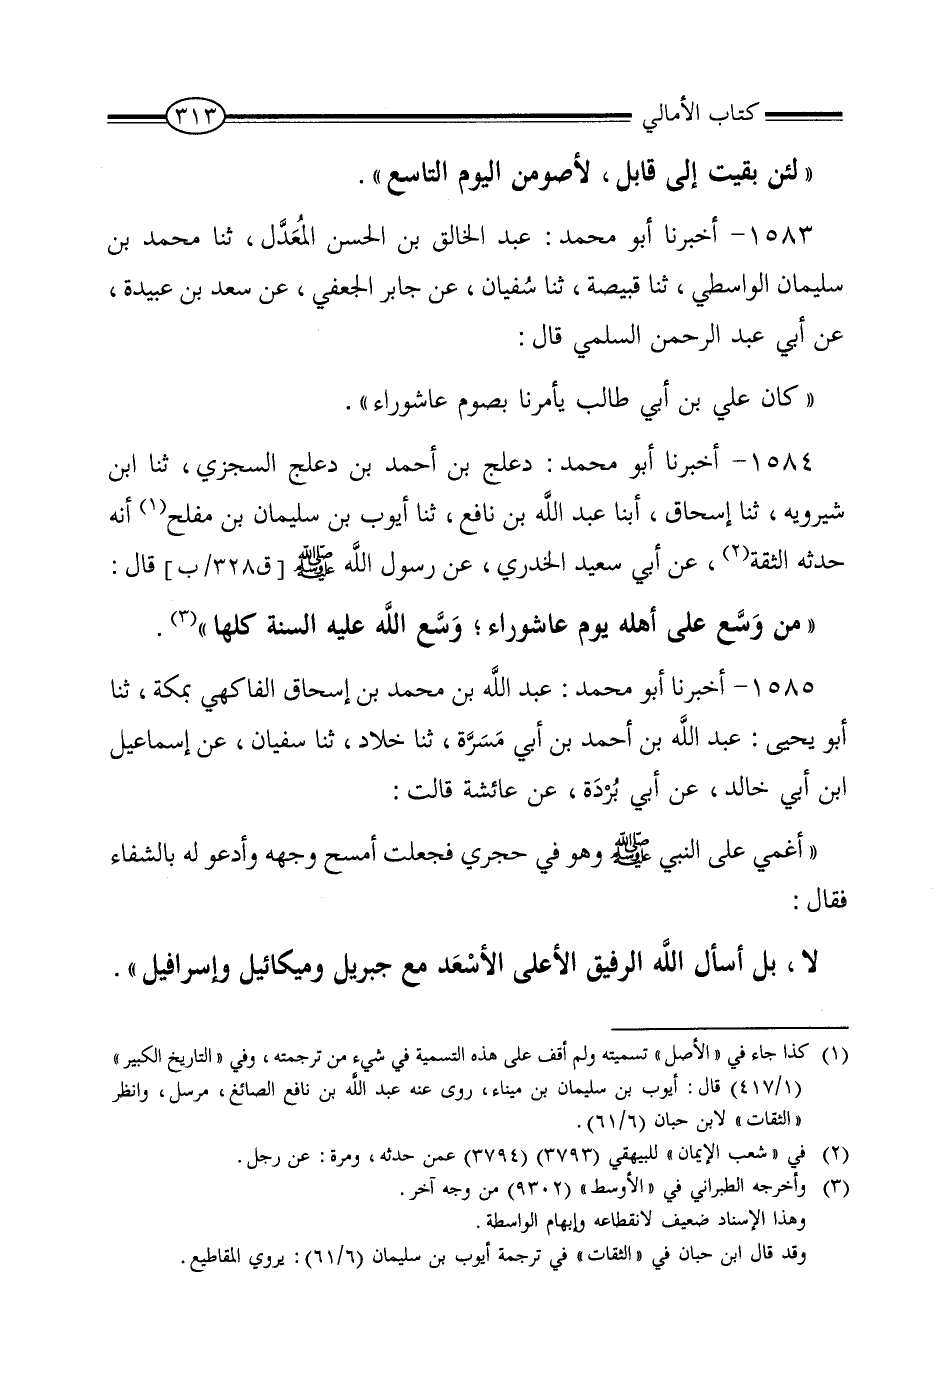 كتاب الأمالي ٣١٣
« لئن بقيت إلى قابل ، لأصومن اليوم التاسع » .
١٥٨٣- أخبرنا أبو محمد : عبد الخالق بن الحسن المُعَدَّل ، ثنا محمد بن
سليمان الواسطي ، ثنا قبيصة ، ثنا سُفيان ، عن جابر الجعفي ، عن سعد بن عبيدة ،
عن أبي عبد الرحمن السلمي قال :
« كان علي بن أبي طالب يأمرنا بصوم عاشوراء » .
١٥٨٤- أخبرنا أبو محمد : دعلج بن أحمد بن دعلج السجزي ، ثنا ابن
شيرويه ، ثنا إسحاق ، أبنا عبد اللَّه بن نافع ، ثنا أيوب بن سليمان بن مفلح(١) أنه
حدثه الثقة(٢) ، عن أبي سعيد الخدري ، عن رسول اللَّه ﷺ [ ق٣٢٨/ ب ] قال :
« من وَسَّع على أهله يوم عاشوراء ؛ وَسَّع اللَّه عليه السنة كلها »(٣) .
١٥٨٥- أخبرنا أبو محمد : عبد اللَّه بن محمد بن إسحاق الفاكهي بمكة ، ثنا
أبو يحيى : عبد اللَّه بن أحمد بن أبي مَسَرَّة ، ثنا خلاد ، ثنا سفيان ، عن إسماعيل
ابن أبي خالد ، عن أبي بُرْدَة ، عن عائشة قالت :
« أغمي على النبي ﷺ وهو في حجري فجعلت أمسح وجهه وأدعو له بالشفاء
فقال :
لا ، بل أسأل اللَّه الرفيق الأعلى الأسْعَد مع جبريل وميكائيل وإسرافيل » .
(١) كذا جاء في « الأصل » تسميته ولم أقف على هذه التسمية في شيء من ترجمته ، وفي « التاريخ الكبير »
(٤١٧/١) قال : أيوب بن سليمان بن ميناء ، روى عنه عبد اللَّه بن نافع الصائغ ، مرسل ، وانظر
« الثقات » لابن حبان (٦١/٦) .
(٢) في « شعب الإيمان » للبيهقي (٣٧٩٣) (٣٧٩٤) عمن حدثه ، ومرة : عن رجل .
(٣) وأخرجه الطبراني في « الأوسط » (٩٣٠٢) من وجه آخر .
وهذا الإسناد ضعيف لانقطاعه وإبهام الواسطة .
وقد قال ابن حبان في « الثقات » في ترجمة أيوب بن سليمان (٦١/٦) : يروي المقاطيع .